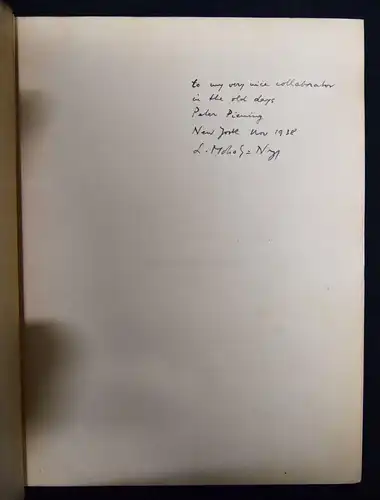 to my very nice collaborator
in the old days
Peter Piening
New York Nov 1938
L. Moholy=Nagy